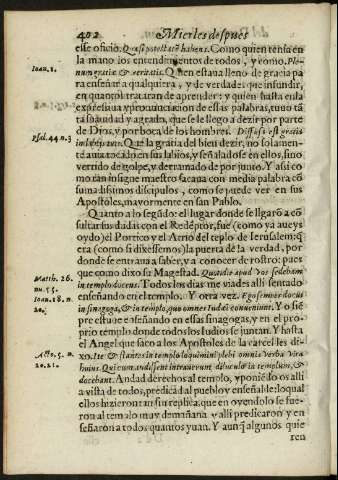 402 Miercles despues
esse oficio. Quasi potestatẽ habens. Como quien tenia en
la mano los entendimientos de todos, y como, Ple-
Ioan. 1.
num gratiæ & veritatis. Quien estaua lleno de gracia pa
ra enseñar a qualquiera, y de verdades que infundir,
en quantos tratauan de aprender: y quien hasta en la
expressiua y pronunciacion de estas palabras, tuuo tã
ta suauidad y agrado, que se le llego a dezir por parte
de Dios, y por boca de los hombres. Diffusa est gratia
Psal. 44. n. 3
in labijs tuis. Que la gracia del bien dezir, no solamen-
te auia tocado en sus labios, y señaladose en ellos, sino
vertido de golpe, y derramado de por junto. Y assi co
mo tan insigne maestro sacaua con media palabra cõ
sumadissimos discipulos, como se puede ver en sus
Apostoles, mayormente en san Pablo.
Quanto a lo segũdo: el lugar donde se llegarõ a cõ
sultar sus dudas con el Redẽptor, fue (como ya aueys
oydo) el Portico y el Atrio del tẽplo de Ierusalem: q̃
era (como si dixessemos) la puerta de la verdad, por
donde se entraua a saber, y a conocer de rostro: pues
que como dixo su Magestad. Quotidie apud vos sedebam
Matth. 26.
nu. 55.
in templo docens. Todos los dias me viades alli sentado
enseñando en el templo. Y otra vez. Ego semper docui
Ioan. 18. n.
20.
in sinagoga, & in templo, quo omnes Iudæi conueniunt. Yo siẽ
pre estuue enseñando en essas sinagogas, y en el pro-
prio templo donde todos los Iudios se juntan. Y hasta
el Angel que saco a los Apostoles de la carcel les di
Acto. 5. n.
20. 21.
xo. Ite & stantes in templo loquimini plebi omnia verba vitæ
huius. Qui cum audissent intrauerunt diluculo in templum, &
docebant. Andad derechos al templo, y poniẽdo os alli
a vista de todos, predicá al pueblo y enseñalde: lo qual
ellos hizieron tan sin replica, que en oyendolo se fue-
ron al templo muy de mañana y alli predicaron y en
señaron a todos quantos yuan. Y aunq̃ algunos quie
ren